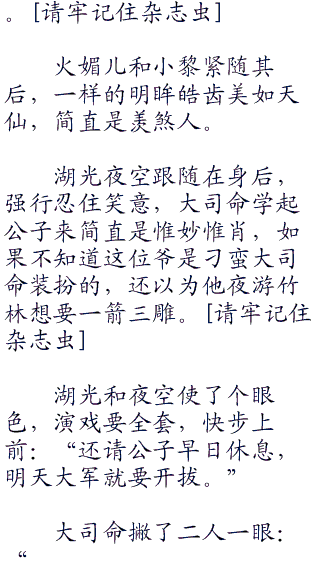 。[请牢记住杂志虫]
火媚儿和小黎紧随其
后，一样的明眸皓齿美如天
仙，简直是羡煞人。
湖光夜空跟随在身后，
强行忍住笑意，大司命学起
公子来简直是惟妙惟肖，如
果不知道这位爷是刁蛮大司
命装扮的，还以为他夜游竹
林想要一箭三雕。[请牢记住
杂志虫]
湖光和夜空使了个眼
色，演戏要全套，快步上
前：“还请公子早日休息，
明天大军就要开拔。”
大司命撇了二人一眼：
“